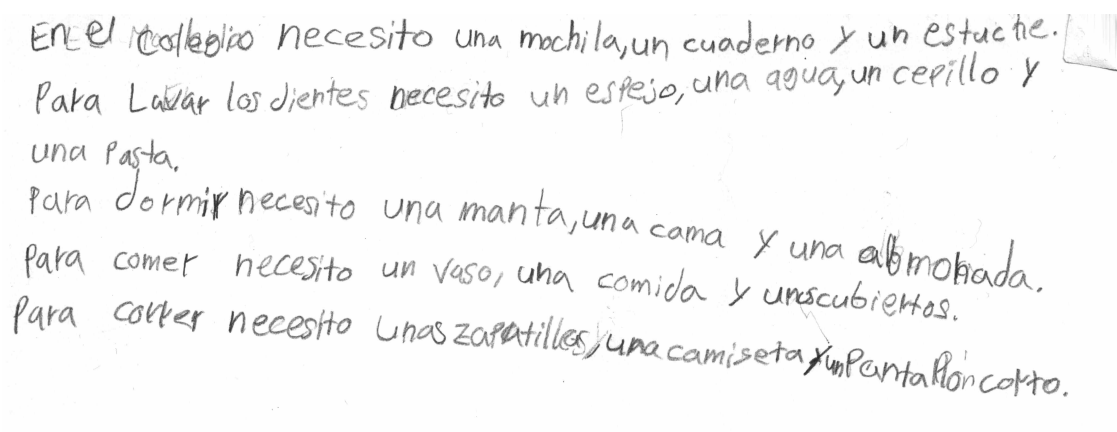 En el collegio necesito una mochila, un cuaderno y un estuche.
Para Lavar los dientes necesito un espejo, una agua, un cepillo y
una Pasta.
Para dormir necesito una manta, una cama y una almohada.
Para comer necesito un vaso, una comida y unoscubiertos.
Para correr necesito unas zapatillas, una camiseta y un Pantalón corto.